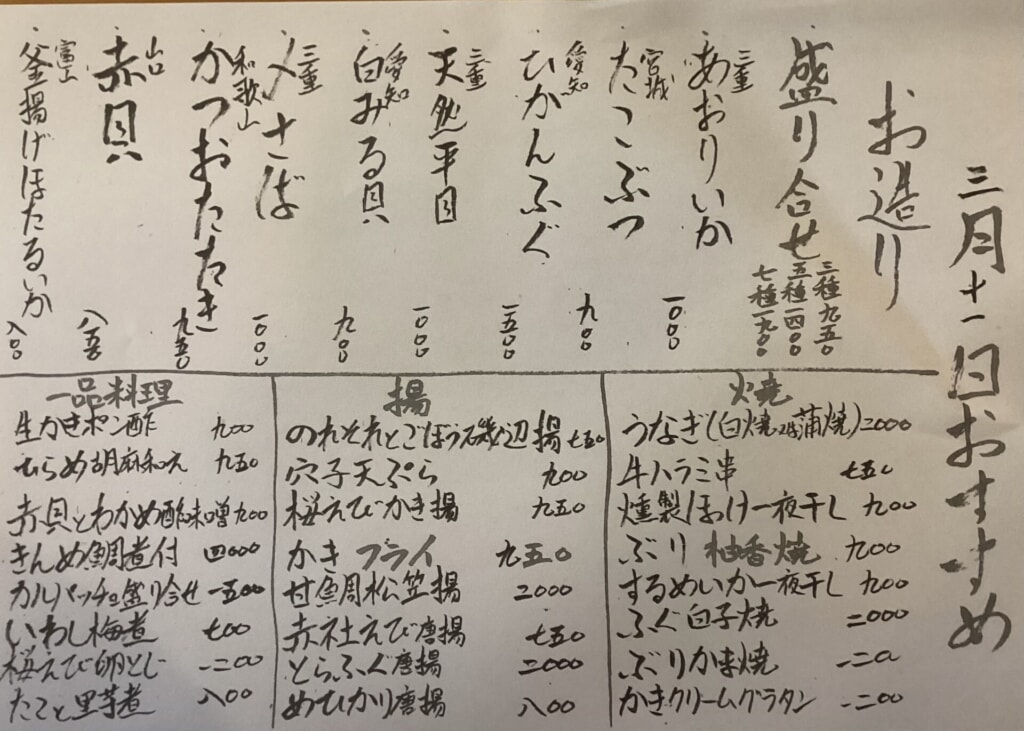 三月十一日おすすめ
お造り
盛り合せ 三種九五〇
五種一四〇〇
七種一九〇〇
三重 あおりいか 一〇〇〇
宮城 たこぶつ 九〇〇
愛知 ひかんふぐ 一五〇〇
三重 天然平目 一〇〇〇
愛知 白みる貝 九〇〇
三重 〆さば 一〇〇〇
和歌山 かつおたたき 九五〇
山口 赤貝 八五〇
富山 釜揚げほたるいか 八〇〇
焼
うなぎ(白焼or蒲焼)二〇〇〇
牛ハラミ串 七五〇
燻製ほっけ一夜干し 九〇〇
ぶり柚香焼 九〇〇
するめいか一夜干し 九〇〇
ふぐ白子焼 二〇〇〇
ぶりかま焼 一二〇〇
かきクリームグラタン 一二〇〇
揚
のれそれとごぼう磯辺揚 七五〇
穴子天ぷら 九〇〇
桜えびかき揚 九五〇
かきフライ 九五〇
甘鯛松笠揚 二〇〇〇
赤社えび唐揚 七五〇
とらふぐ唐揚 二〇〇〇
めひかり唐揚 八〇〇
一品料理
生かきポン酢 九〇〇
ひらめ胡麻和え 九五〇
赤貝とわかめ酢味噌 九〇〇
きんめ鯛煮付 四〇〇〇
カルパッチョ盛り合せ 一五〇〇
いわし梅煮 七〇〇
桜えび卵とじ 一二〇〇
たこと里芋煮 八〇〇